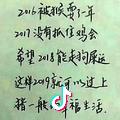 2016被猴耍了一年
2017没有抓住鸡会
希望2018能走狗屎运
这样2019就可以过上
猪一般 幸福生活.